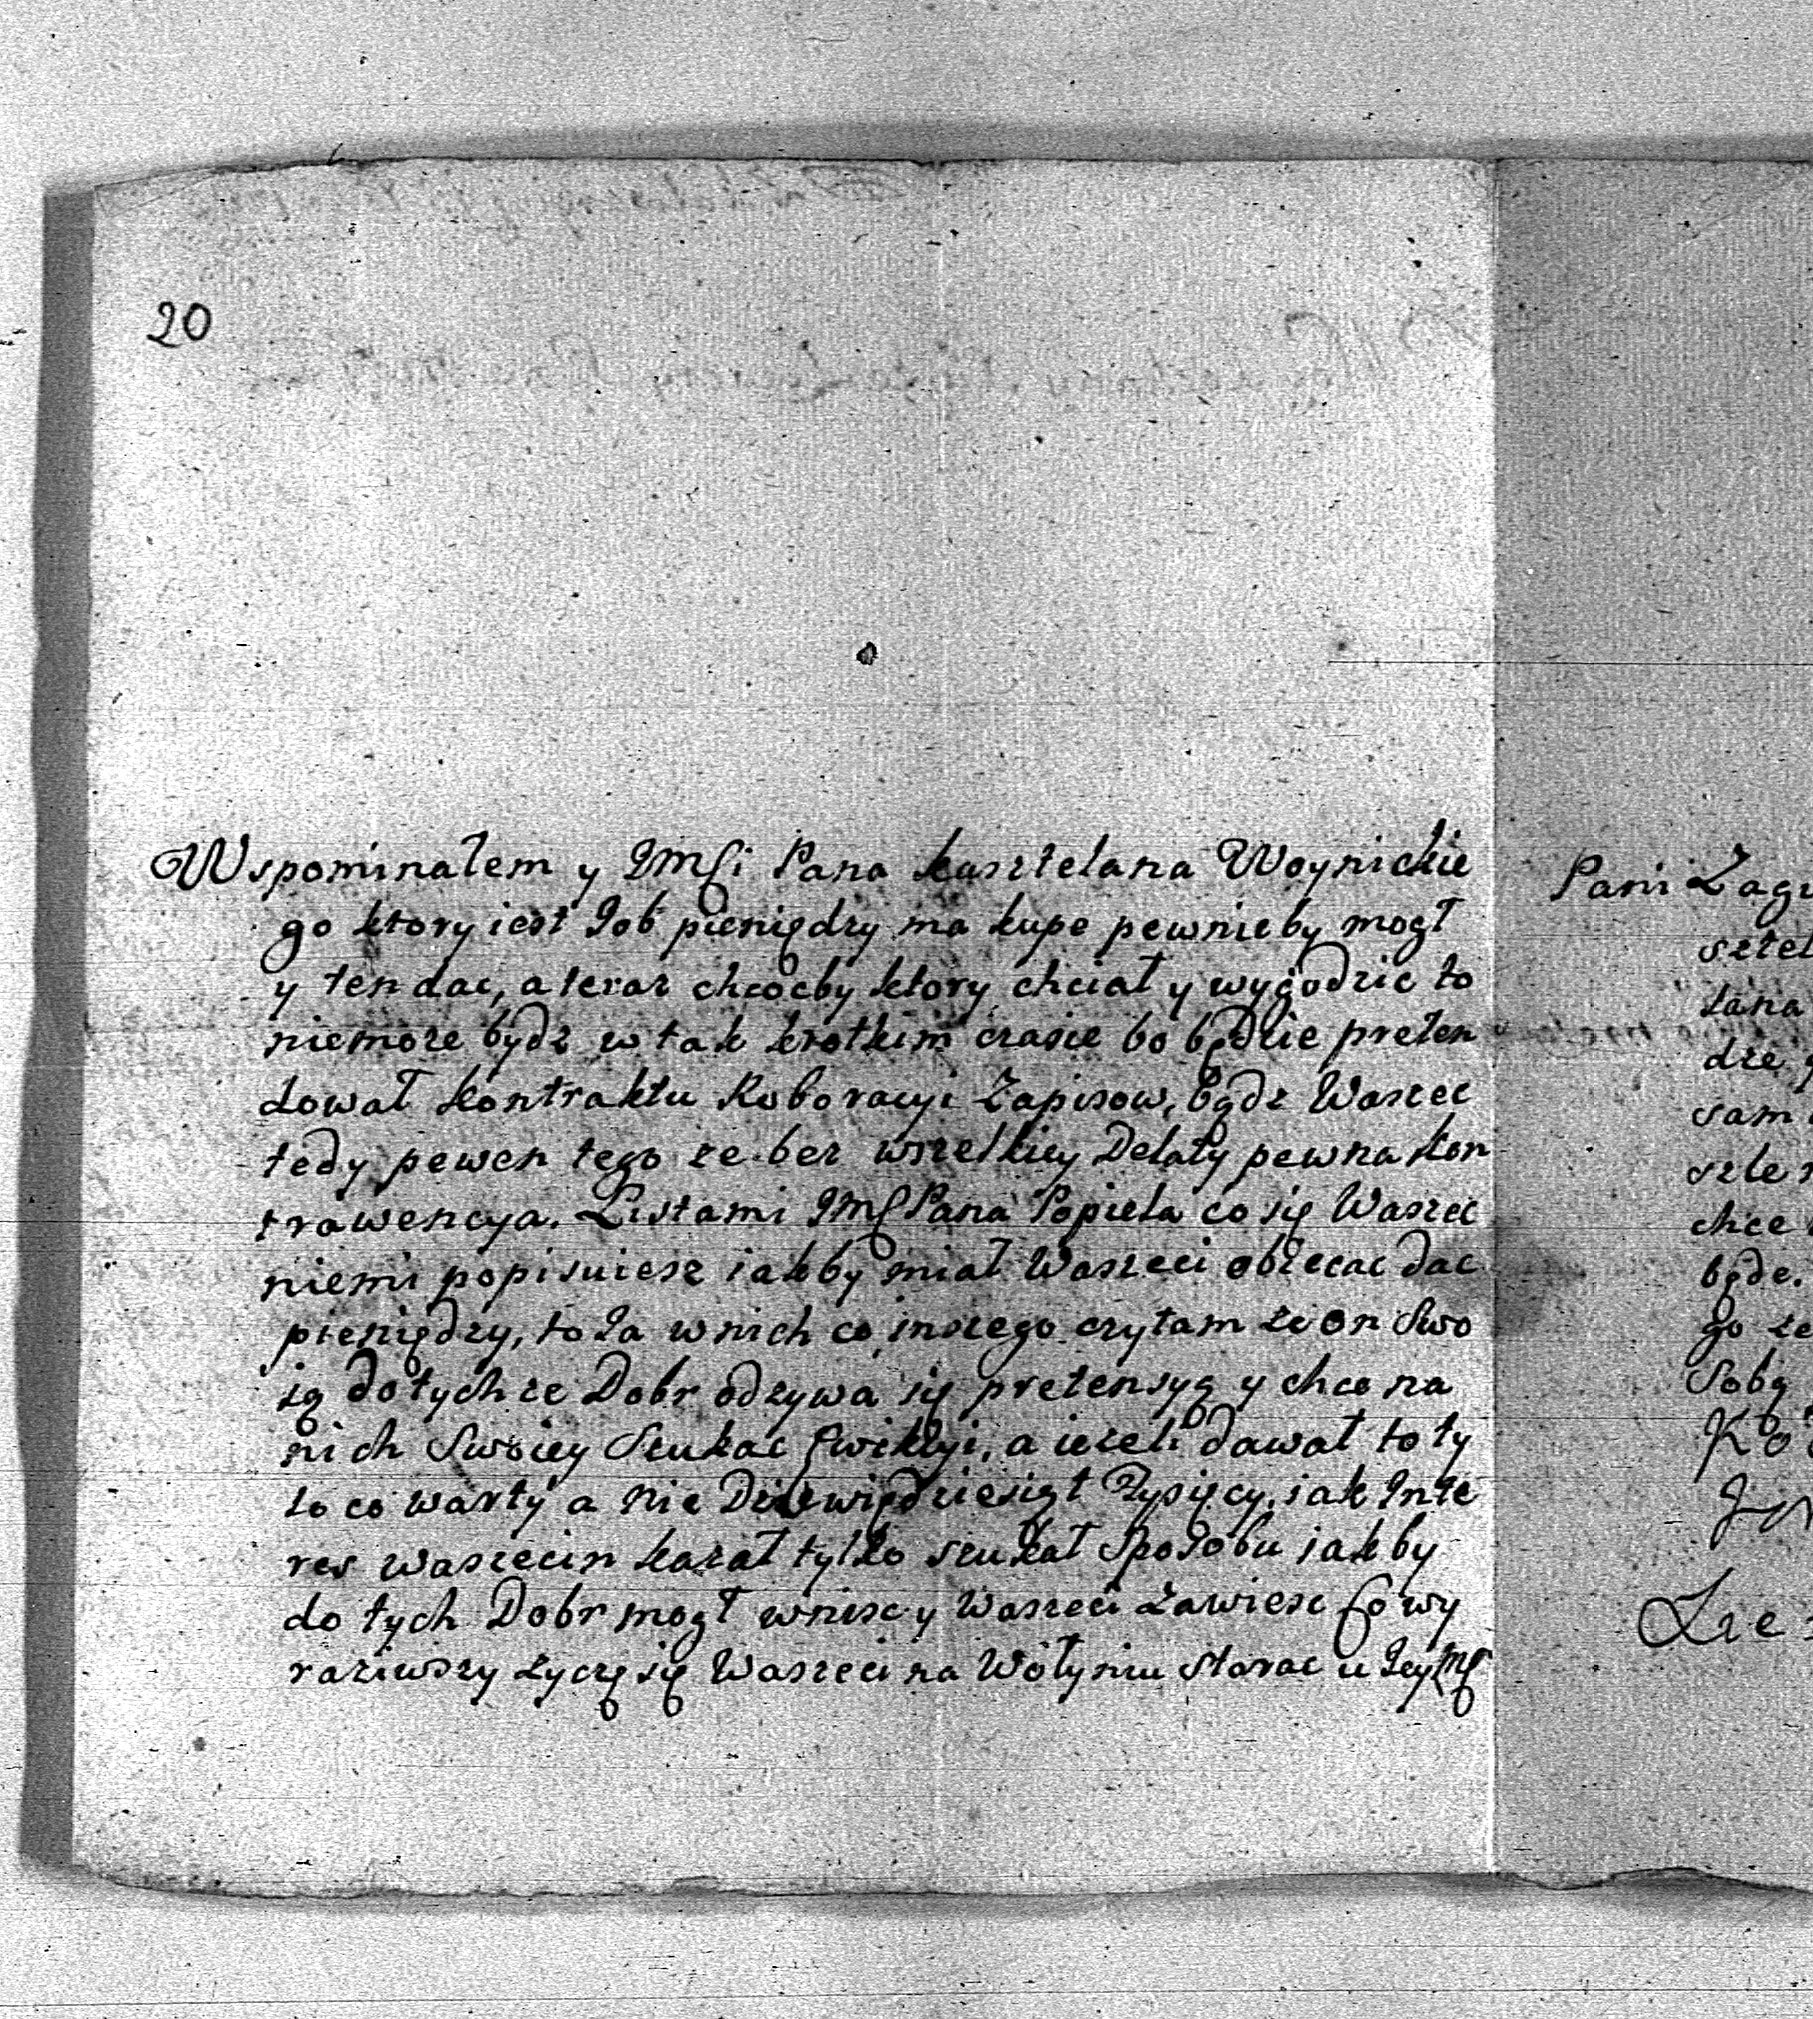 20
Wspominałem y JMSci Pana kasztelana Woynickie
go ktory iest Job pieniędzy ma kupe pewnieby mogł
y ten dac, a teraz chcocby ktory chciał y wygodzic to
niemoze bydz w tak krotkim czasie bo będzie preten
dował kontraktu Roboracyi Zapisow, bądz Waszec
tedy pewen tego ze bez wszelkiey Delaty pewna kon
trawencya. Listami JMS Pana Popiela co się Waszec
niemi popisuiesz iakby miał Waszeci obiecac dac
pieniędzy, to Ja w nich co inszego czytam ze on Swo
ią do tychze Dobr odzywa się pretensyą y chce na
nich Swoiey Szukac Ewikcyi, a iezeli dawał to ty
lo co warty a nie Dziewiędziesiąt Tysięcy, iak Inte
res waszecin kazał tylko szukał Sposobu iakby
do tych Dobr mogł wnisc y Waszeci Zawiesc Co wy
raziwszy zyczę się Waszeci na Wołyniu starac u Jey MS
Pani Zagu
sztel
lana
dze
sam
szle
chce
będe.
go ze
Sobą
Ko
Ize